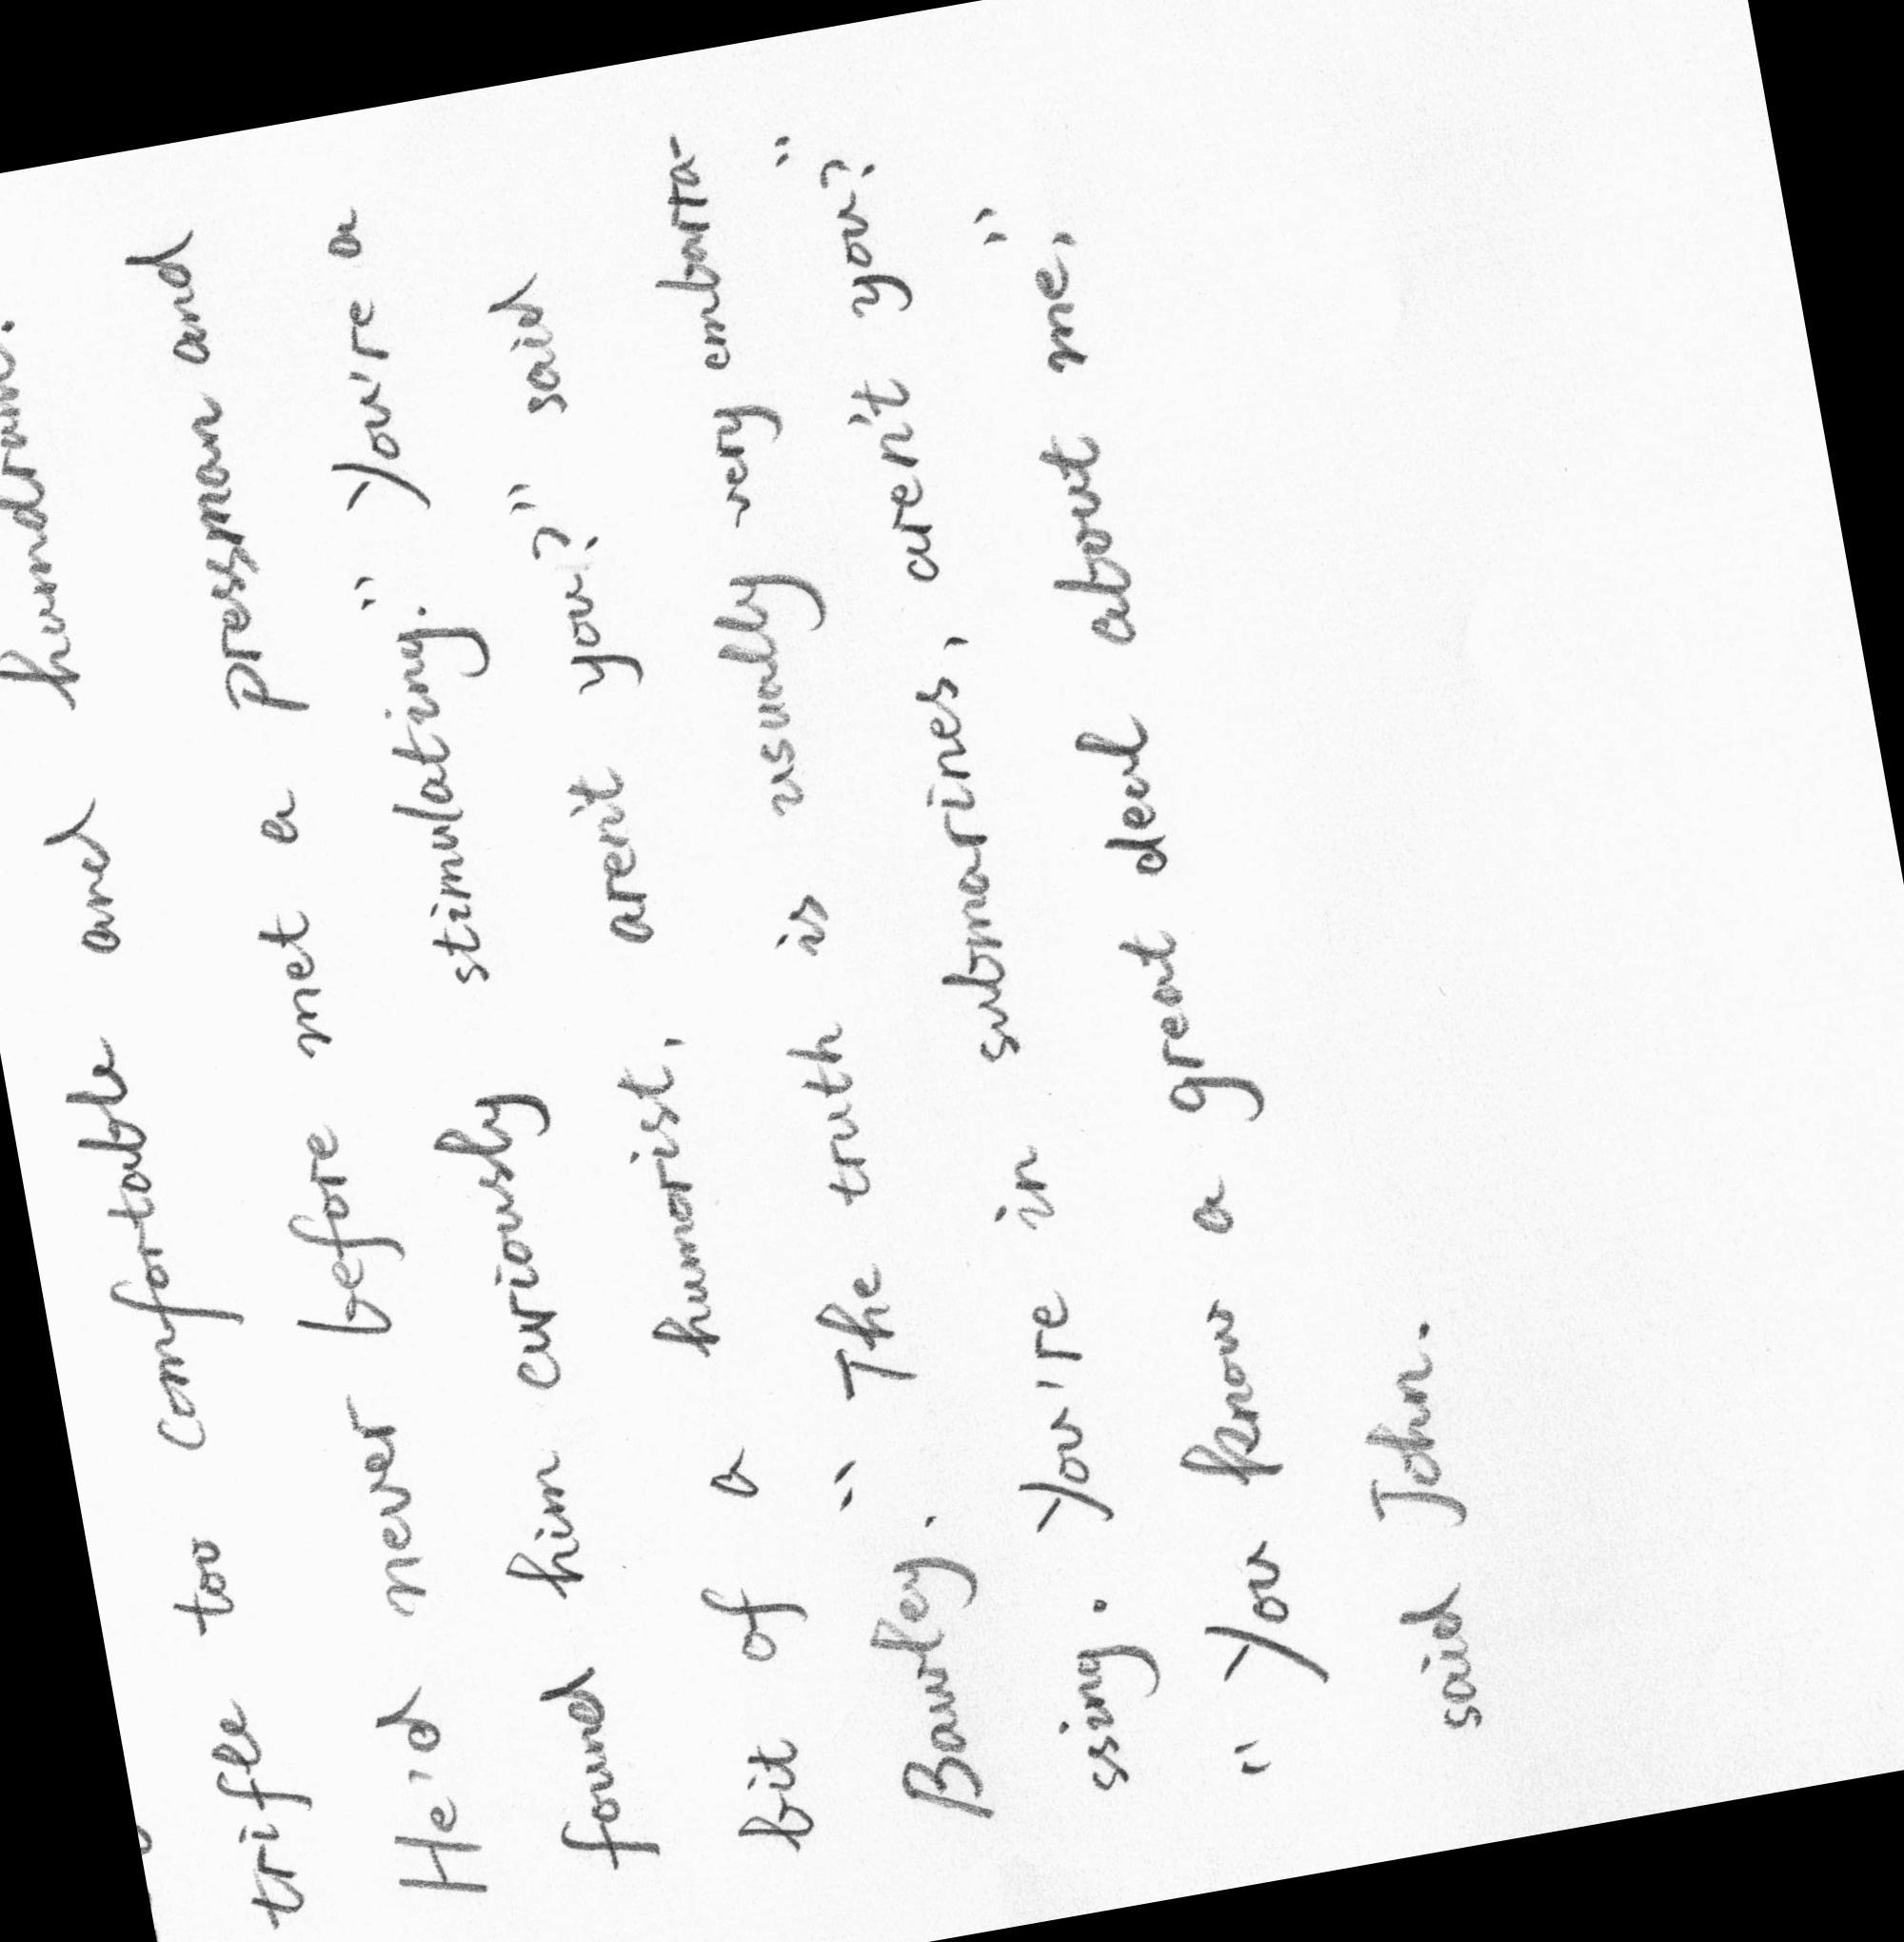 trifle too comfortable and humdrum.
He'd never before met a pressman and
found him curiously stimulating. "You're a
bit of a humorist, aren't you?" said
Bawley. "The truth is usually very embarra-
ssing. You're in submarines, aren't you?"
"You know a great deal about me,"
said John.